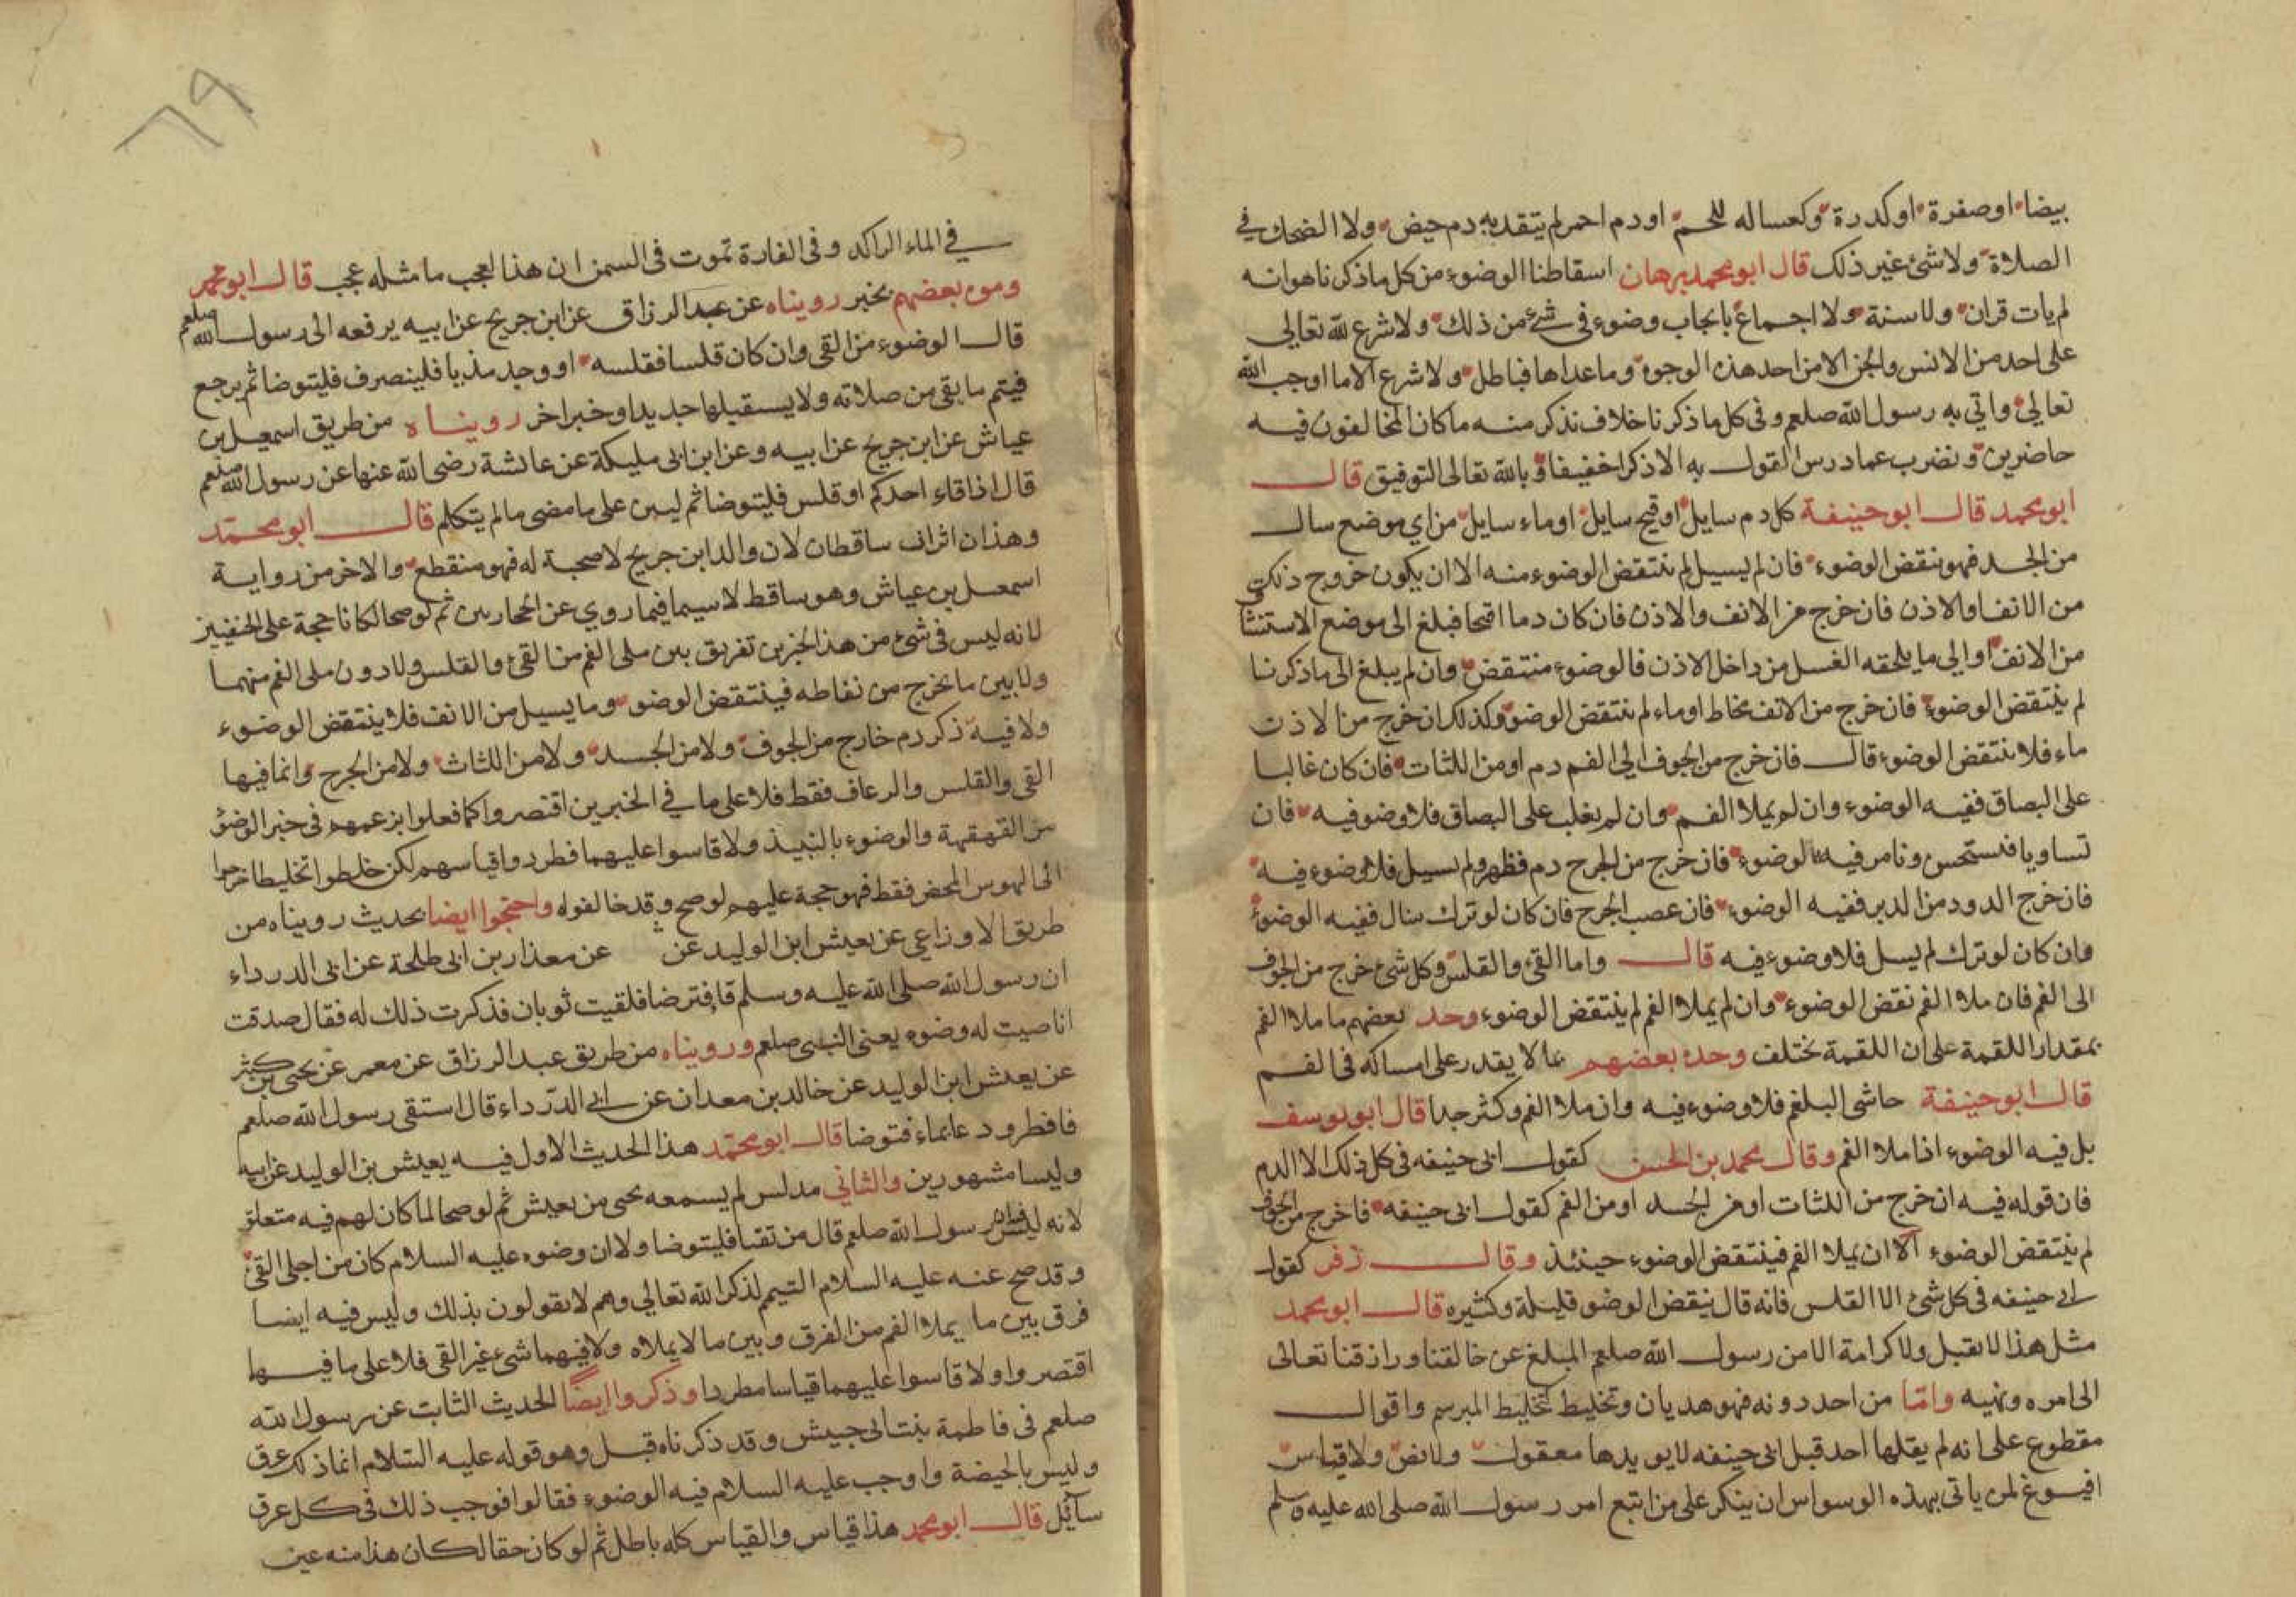 بيضا او صفرة او كدرة وكغساله للحم او دم احمر لم يتقدمه دم حيض ولا الضحك في
الصلاة ولا شئ غير ذلك قال ابو محمد برهان اسقاطنا الوضوء من كل ما ذكرنا هو انه
لم يات قران ولا سنة ولا اجماع بايجاب وضوء في شئ من ذلك ولا شرع لله تعالى
على احد من الانس والجن الا من احد هذه الوجوه وما عداها فباطل ولا شرع الا ما اوجب الله
تعالى واتي به رسول الله صلعم وفي كل ما ذكرنا خلاف نذكر منه ما كان المخالفون فيه
حاضرين ونضرب عما درس القول به الا ذكرا خفيفا وبالله تعالى التوفيق قال
ابو محمد قال ابو حنيفة كل دم سايل او قيح سايل او ماء سايل من اي موضع سال
من الجسد فهو ينقض الوضوء فان لم يسيل لم ينتقض الوضوء منه الا ان يكون خروج ذلك
من الانف او الاذن فان خرج من الانف والاذن فان كان دما او قيحا فبلغ الى موضع الاستنشا
من الانف او الي ما يلحقه الغسل من داخل الاذن فالوضوء منتقض وان لم يبلغ الى ما ذكرنا
لم ينتقض الوضوء فان خرج من الانف مخاط او ماء لم ينتقض الوضوء وكذلك ان خرج من الاذن
ماء فلا ينتقض الوضوء قال فان خرج من الجوف الي الفم دم او من اللثات فان كان غالبا
على البصاق ففيه الوضوء وان لم يملا الفم وان لم يغلب على البصاق فلا وضو فيه فان
تساويا فنستحسن ونامر فيه بالوضوء فان خرج من الجرح دم فظهر ولم يسيل فلا وضوء فيه
فان خرج الدود من الدبر ففيه الوضوء فان عصب الجرح فان كان لو ترك سال ففيه الوضوء
وان كان لو ترك لم يسل فلا وضوء فيه قال واما القئ والقلس وكل شئ خرج من الجوف
الى الفم فان ملا الفم نقض الوضوء وان لم يملا الفم لم ينتقض الوضوء وحد بعضهم ما ملا الفم
بمقدار اللقمة على ان اللقمة تختلف وحد بعضهم بما لا يقدر على امساكه في الفم
قال ابو حنيفة حاشى البلغم فلا وضوء فيه وان ملا الفم وكثر جدا قال ابو يوسف
بل فيه الوضوء اذا ملا الفم وقال محمد بن الحسن كقول ابي حنيفه في كل ذلك الا الدم
فان قوله فيه ان خرج من اللثات او من الجسد او من الفم كقول ابي حنيفه فما خرج من الجوف
لم ينتقض الوضوء الا ان يملا الفم فينتقض الوضوء حينئذ وقال زفر كقول
ابي حنيفه في كل شئ الا القلس فانه قال ينقض الوضو قليلة وكثيره قال ابو محمد
مثل هذا لا يقبل ولا كرامة الا من رسول الله صلعم المبلغ عن خالقنا ورازقنا تعالى
الى امره ونهيه واما من احد دونه فهو هديان وتخليط كتخليط المبرسم واقوال
مقطوع على انه لم يقلها احد قبل ابي حنيفه لا يويدها معقول ولا نص ولا قياس
افيسوغ لمن ياتى بهذه الوسواس ان ينكر على من اتبع امر رسول الله صلى الله عليه وسلم
٦٩
في الماء الراكد وفي الفارة تموت في السمن ان هذا لعجب ما مثله عجب قال ابو محمد
وموه بعضهم بخبر رويناه عن عبد الرزاق عن ابن جريج عن ابيه يرفعه الى رسول الله صلعم
قال الوضوء من القئ وان كان قلسا فقلسه او وجد مذيا فلينصرف فليتوضا ثم يرجع
فيتم ما بقي من صلاته ولا يستقبلها جديدا وخبر اخر رويناه من طريق اسمعيل بن
عياش عن ابن جريج عن ابيه وعن ابن ابى مليكة عن عائشة رضي الله عنها عن رسول الله صلعم
قال اذا قاء احدكم او قلس فليتوضا ثم ليبن على ما مضى ما لم يتكلم قال ابو محمد
وهذان اثران ساقطان لان والد ابن جريج لا صحبة له فهو منقطع والاخر من رواية
اسمعيل بن عياش وهو ساقط لا سيما فيما روي عن الحجازيين ثم لو صحا لكانا حجة على الحنفيين
لانه ليس في شئ من هذا الخبرين تفريق بين ملى الفم من القئ والقلس ولا دون ملى الفم منهما
ولا بين ما يخرج من نفاطه فينتقض الوضو وما يسيل من الانف فلا ينتقض الوضوء
ولا فيه ذكر دم خارج من الجوف ولا من الجسد ولا من اللثاث ولا من الجرح وانما فيها
القئ والقلس والرعاف فقط فلا على ما في الخبرين اقتصروا كما فعلوا بزعمهم في خبر الوضؤ
من القهقهة والوضوء بالنبيذ ولا قاسوا عليهما فطردوا قياسهم لكن خلطوا تخليطا خرجوا
الى الهوس المحض فقط فهو حجة عليهم لو صح وقد خالفوه واحتجوا ايضا بحديث رويناه من
طريق الاوزاعي عن يعيش ابن الوليد عن عن معدان بن ابى طلحة عن ابى الدرداء
ان رسول الله صلى الله عليه وسلم قا فتوضا فلقيت ثوبان فذكرت ذلك له فقال صدقت
انا صببت له وضوه يعنى النبى صلعم ورويناه من طريق عبد الرزاق عن معمر عن يحيى بن كثير
عن يعيش ابن الوليد عن خالد بن معدان عن ابي الدرداء قال استقى رسول الله صلعم
فافطر ودعا بماء فتوضا قال ابو محمد هذا الحديث الاول فيه يعيش بن الوليد عن ابيه
وليسا مشهورين والثاني مدلس لم يسمعه يحى من يعيش ثم لو صحا لما كان لهم فيه متعلق
لانه ليس فيهما ان رسول الله صلعم قال من تقيا فليتوضا ولا ان وضوه عليه السلام كان من اجل القئ
وقد صح عنه عليه السلام التيمم لذكر الله تعالي وهم لا يقولون بذلك وليس فيه ايضا
فرق بين ما يملا الفم من الفرق وبين ما لا يملاه ولا فيهما شئ غير القئ فلا على ما فيها
اقتصروا ولا قاسوا عليهما قياسا مطردا وذكروا ايضا الحديث الثابت عن رسول الله
صلعم في فاطمة بنت ابى حبيش وقد ذكرناه قبل وهو قوله عليه السلام انما ذلك عرق
وليس بالحيضة واوجب عليه السلام فيه الوضوء فقالوا فوجب ذلك في كل عرق
سايل قال ابو محمد هذا قياس والقياس كله باطل ثم لو كان حقا لكان هذا منه عين